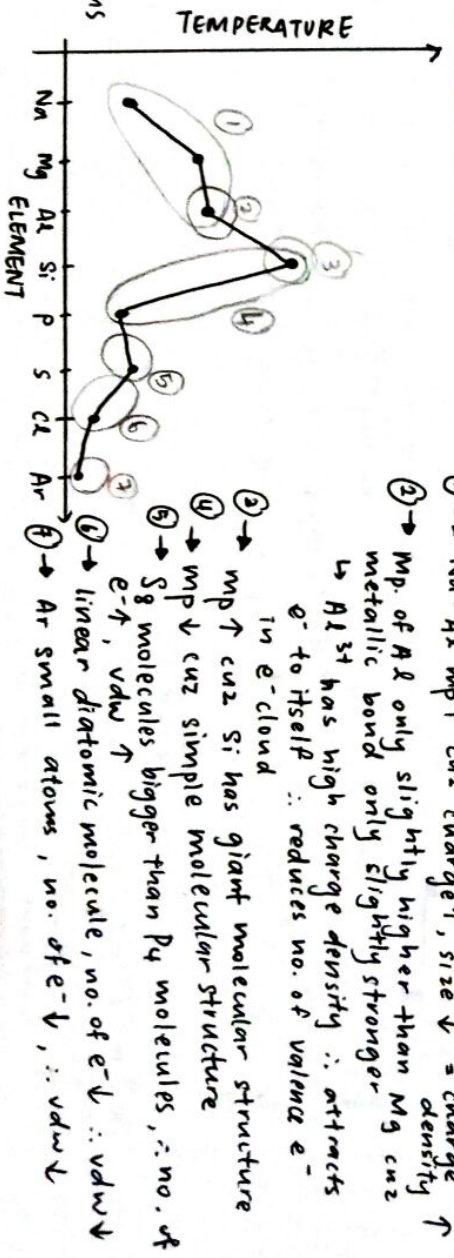 ns
TEMPERATURE
Na Mg Al Si P S Cl Ar
ELEMENT
① ② ③ ④ ⑤ ⑥ ⑦
Na - Al mp↑ cuz charge↑, size ↓ = charge density ↑
② → Mp. of Al only slightly higher than Mg cuz
metallic bond only slightly stronger
↳ Al³⁺ has high charge density ∴ attracts
e⁻ to itself ∴ reduces no. of valence e⁻
in e⁻ cloud
③ → mp ↑ cuz Si has giant molecular structure
④ → mp ↓ cuz simple molecular structure
⑤ → S8 molecules bigger than P4 molecules, ∴ no. of
e⁻ ↑, vdw ↑
⑥ → linear diatomic molecule, no. of e⁻ ↓ ∴ vdw ↓
⑦ → Ar small atoms, no. of e⁻ ↓, ∴ vdw ↓